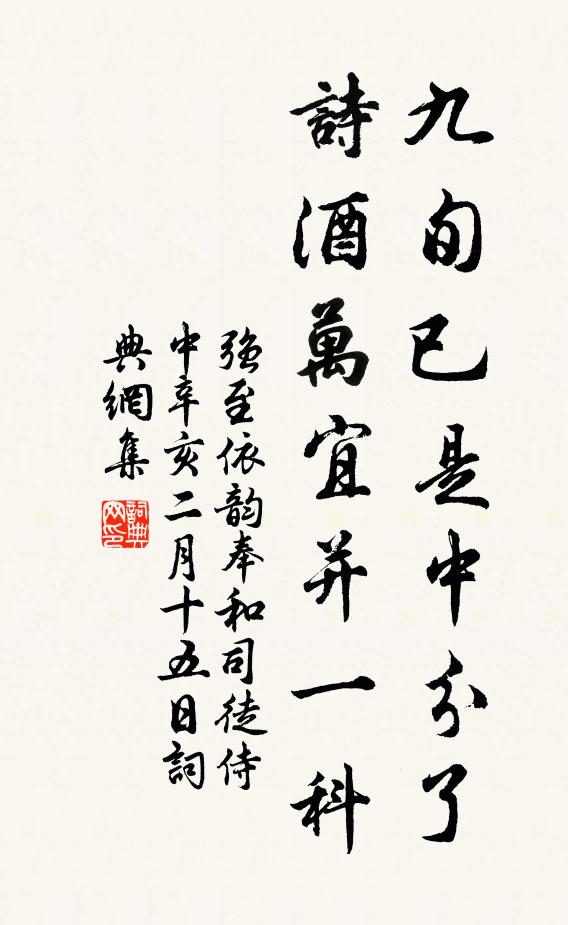 九旬已是中分了
詩酒萬宜并一科
强至依韵奉和司徒侍
中辛亥二月十五日詞
典網集
詞典
网印